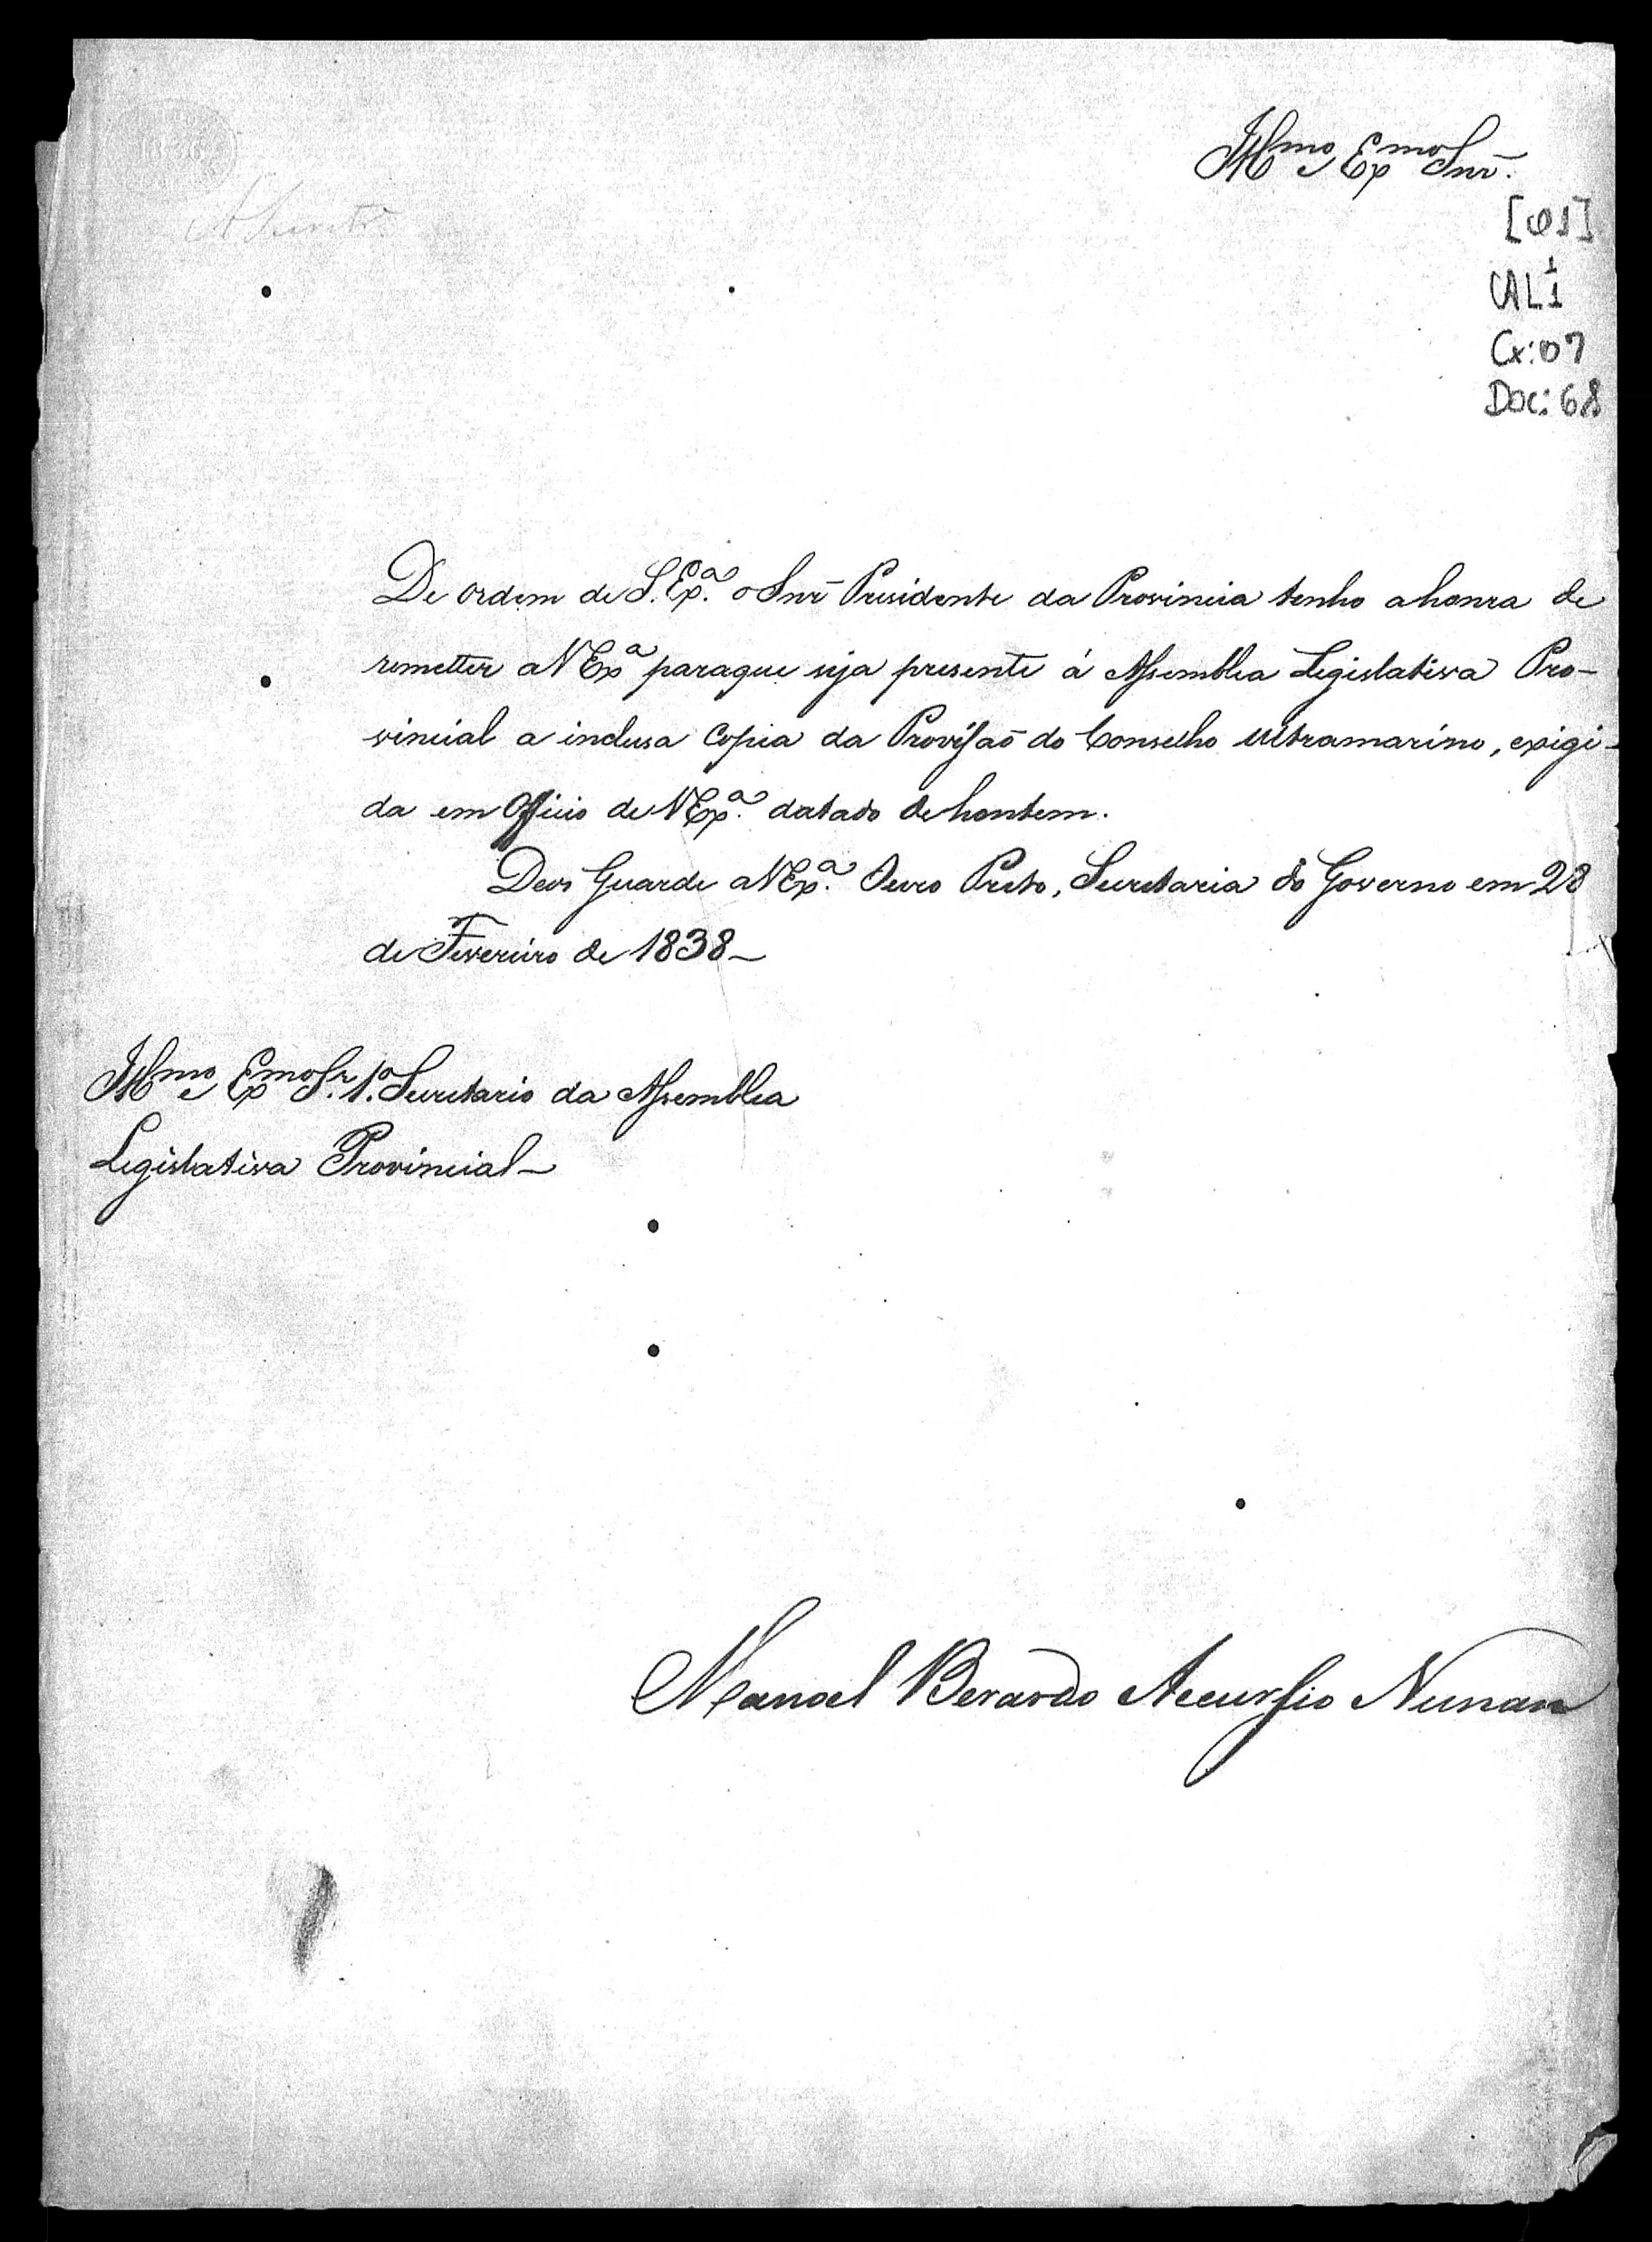 Illmo e Exmo Snr.
[01]
AL 1 1
Cx: 07
Doc: 68
De ordem de S. Exa. o Snr Presidente da Provincia tenho a honra de
remetter a V Exa para que seja presente á Assemblea Legislativa Pro-
vincial a inclusa Copia da Provisaõ do Conselho Ultramarino, exigi-
da em Officio de V Exa. datado de hontem.
Deos Guarde a V Exa. Ouro Preto, Secretaria do Governo em 28
de Fevereiro de 1838_
Illmo e Exmo Sr. 1o. Secretario da Assemblea
Legislativa Provincial_
Manoel Berardo Accursio Nunan